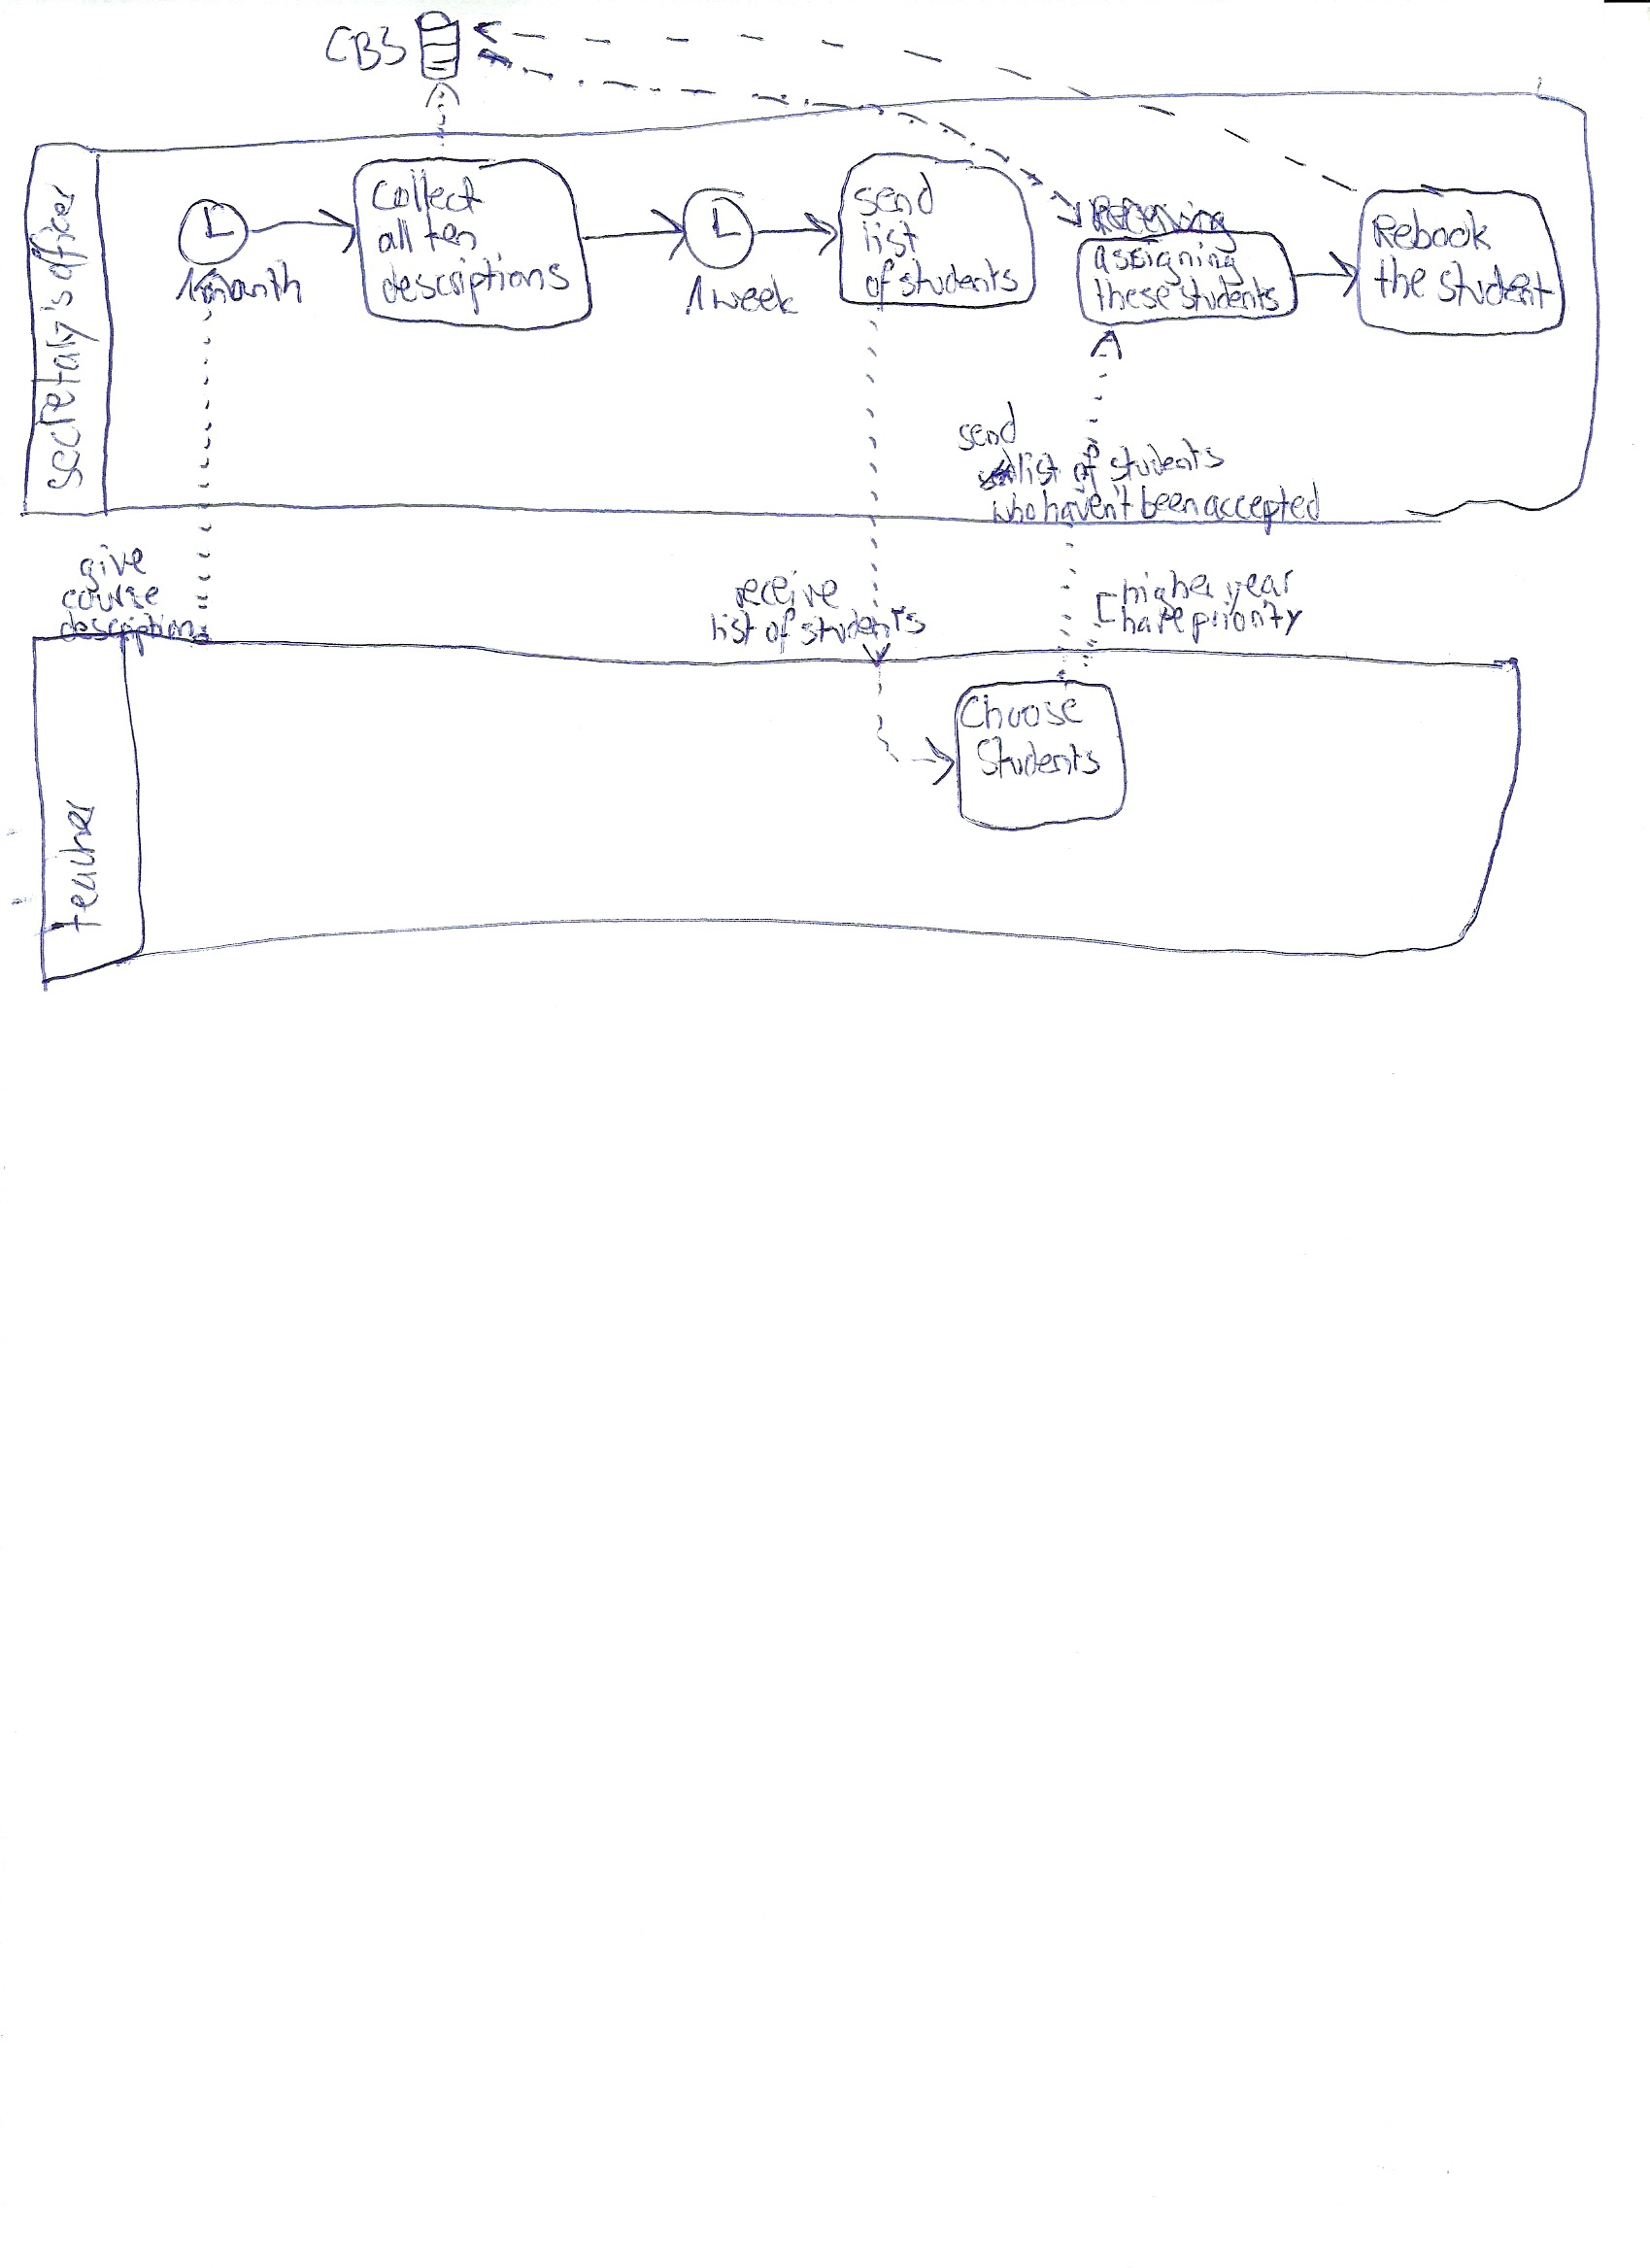 CBS
secretary's officer
1 month
Collect
all ten
descriptions
1 week
send
list
of students
Receiving
assigning
these students
Rebook
the student
send
list of students
who haven't been accepted
give
course
descriptions
receive
list of students
higher year
have priority
teacher
Choose
Students